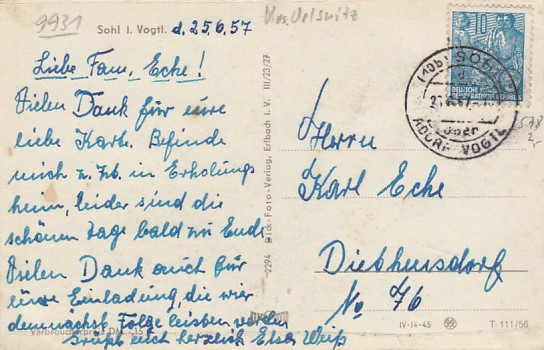 9931
Krs. Oelsnitz
Sohl i. Vogtl. d. 25.6.57
Liebe Fam. Ecke!
Vielen Dank für eure
liebe Karte. Befinde
mich z. Zt. in Erholungs
heim, leider sind die
schönen Tage bald zu Ende
Vielen Dank auch für
eure Einladung, die wir
demnächst Folge leisten werden
Grüßt euch herzlich Elsa Weiß
Verbraucherpreis DM -,15
2294 Bick-Foto-Verlag, Erlbach i. V. III/23/27
10
DEUTSCHE
DEMOKRATISCHE REPUBLIK
(10b) SOHL
über
ADORF VOGTL
Herrn
Karl Ecke
Diethensdorf
No. 76
IV-14-45
T 111/56